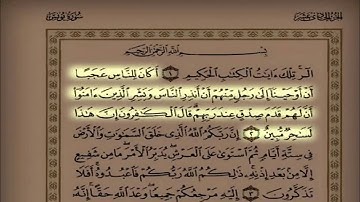 سورة يونس
الجزء الحادي عشر
بسم الله الرحمن الرحيم
الر تلك ءايت الكتب الحكيم ١ أكان للناس عجبا
أن أوحينا إلى رجل منهم أن أنذر الناس وبشر الذين ءامنوا
أن لهم قدم صدق عند ربهم قال الكفرون إن هذا
لسحر مبين ٢ إن ربكم الله الذي خلق السموت والأرض
في ستة أيام ثم استوى على العرش يدبر الأمر ما من شفيع
إلا من بعد إذنه ذلكم الله ربكم فاعبدوه أفلا
تذكرون ٣ إليه مرجعكم جميعا وعد الله حقا إنه